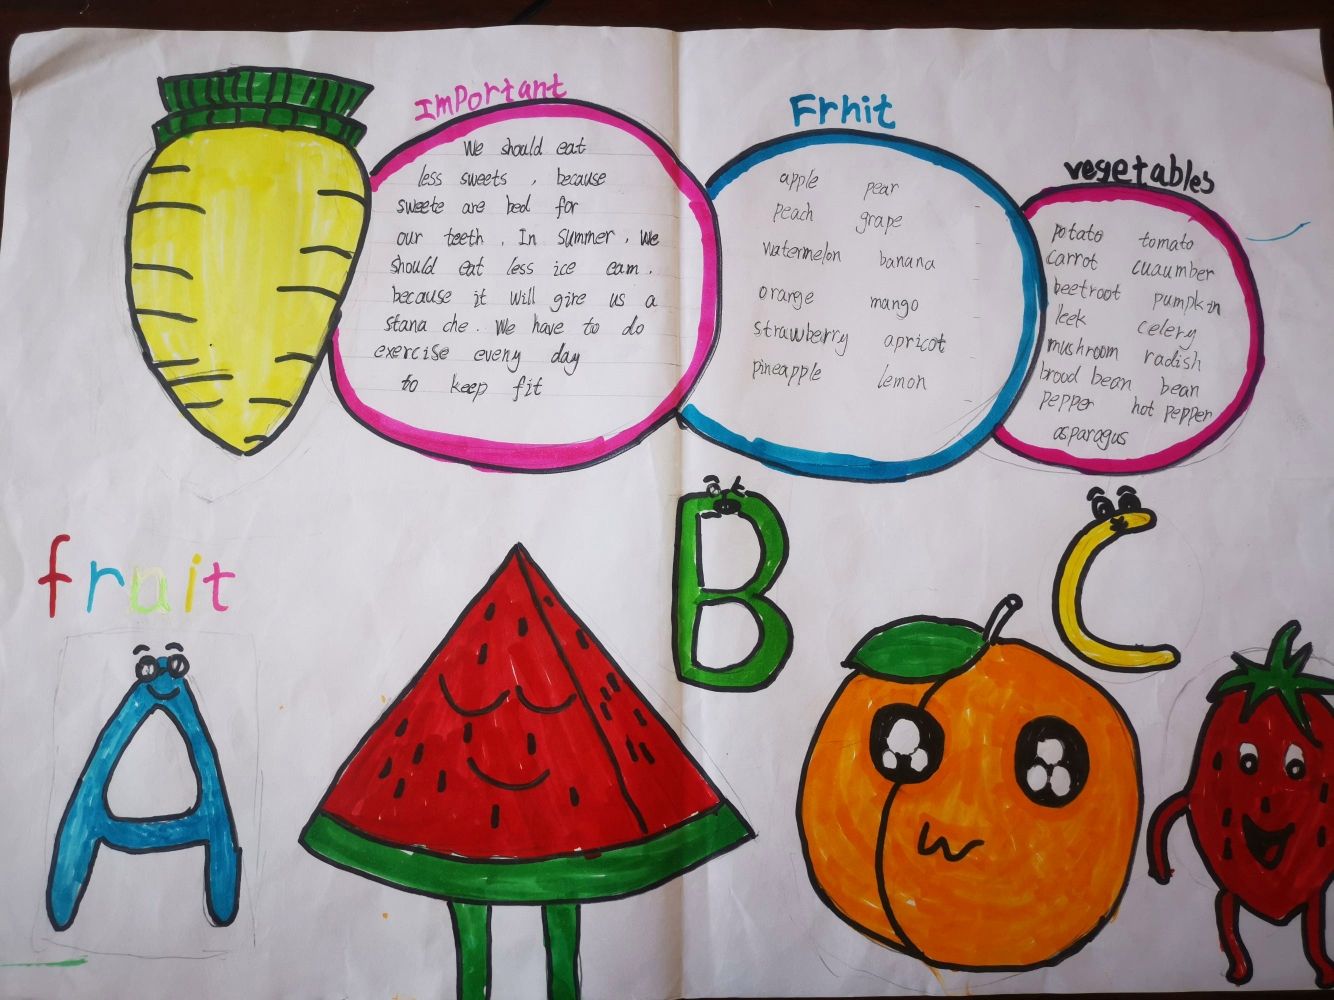 Important
We should eat
less sweets , because
sweete are bed for
our teeth . In summer . We
should eat less ice eam .
because it will give us a
stana che . We have to do
exercise eveny day
to keep fit
Frhit
apple pear
peach grape
watermelon banana
orange mango
strawberry apricot
pineapple lemon
vegetables
potato tomato
carrot cuaumber
beetroot pumpkin
leek celery
mushroom radish
brood bean bean
pepper hot pepper
asparagus
fruit
A
B
C